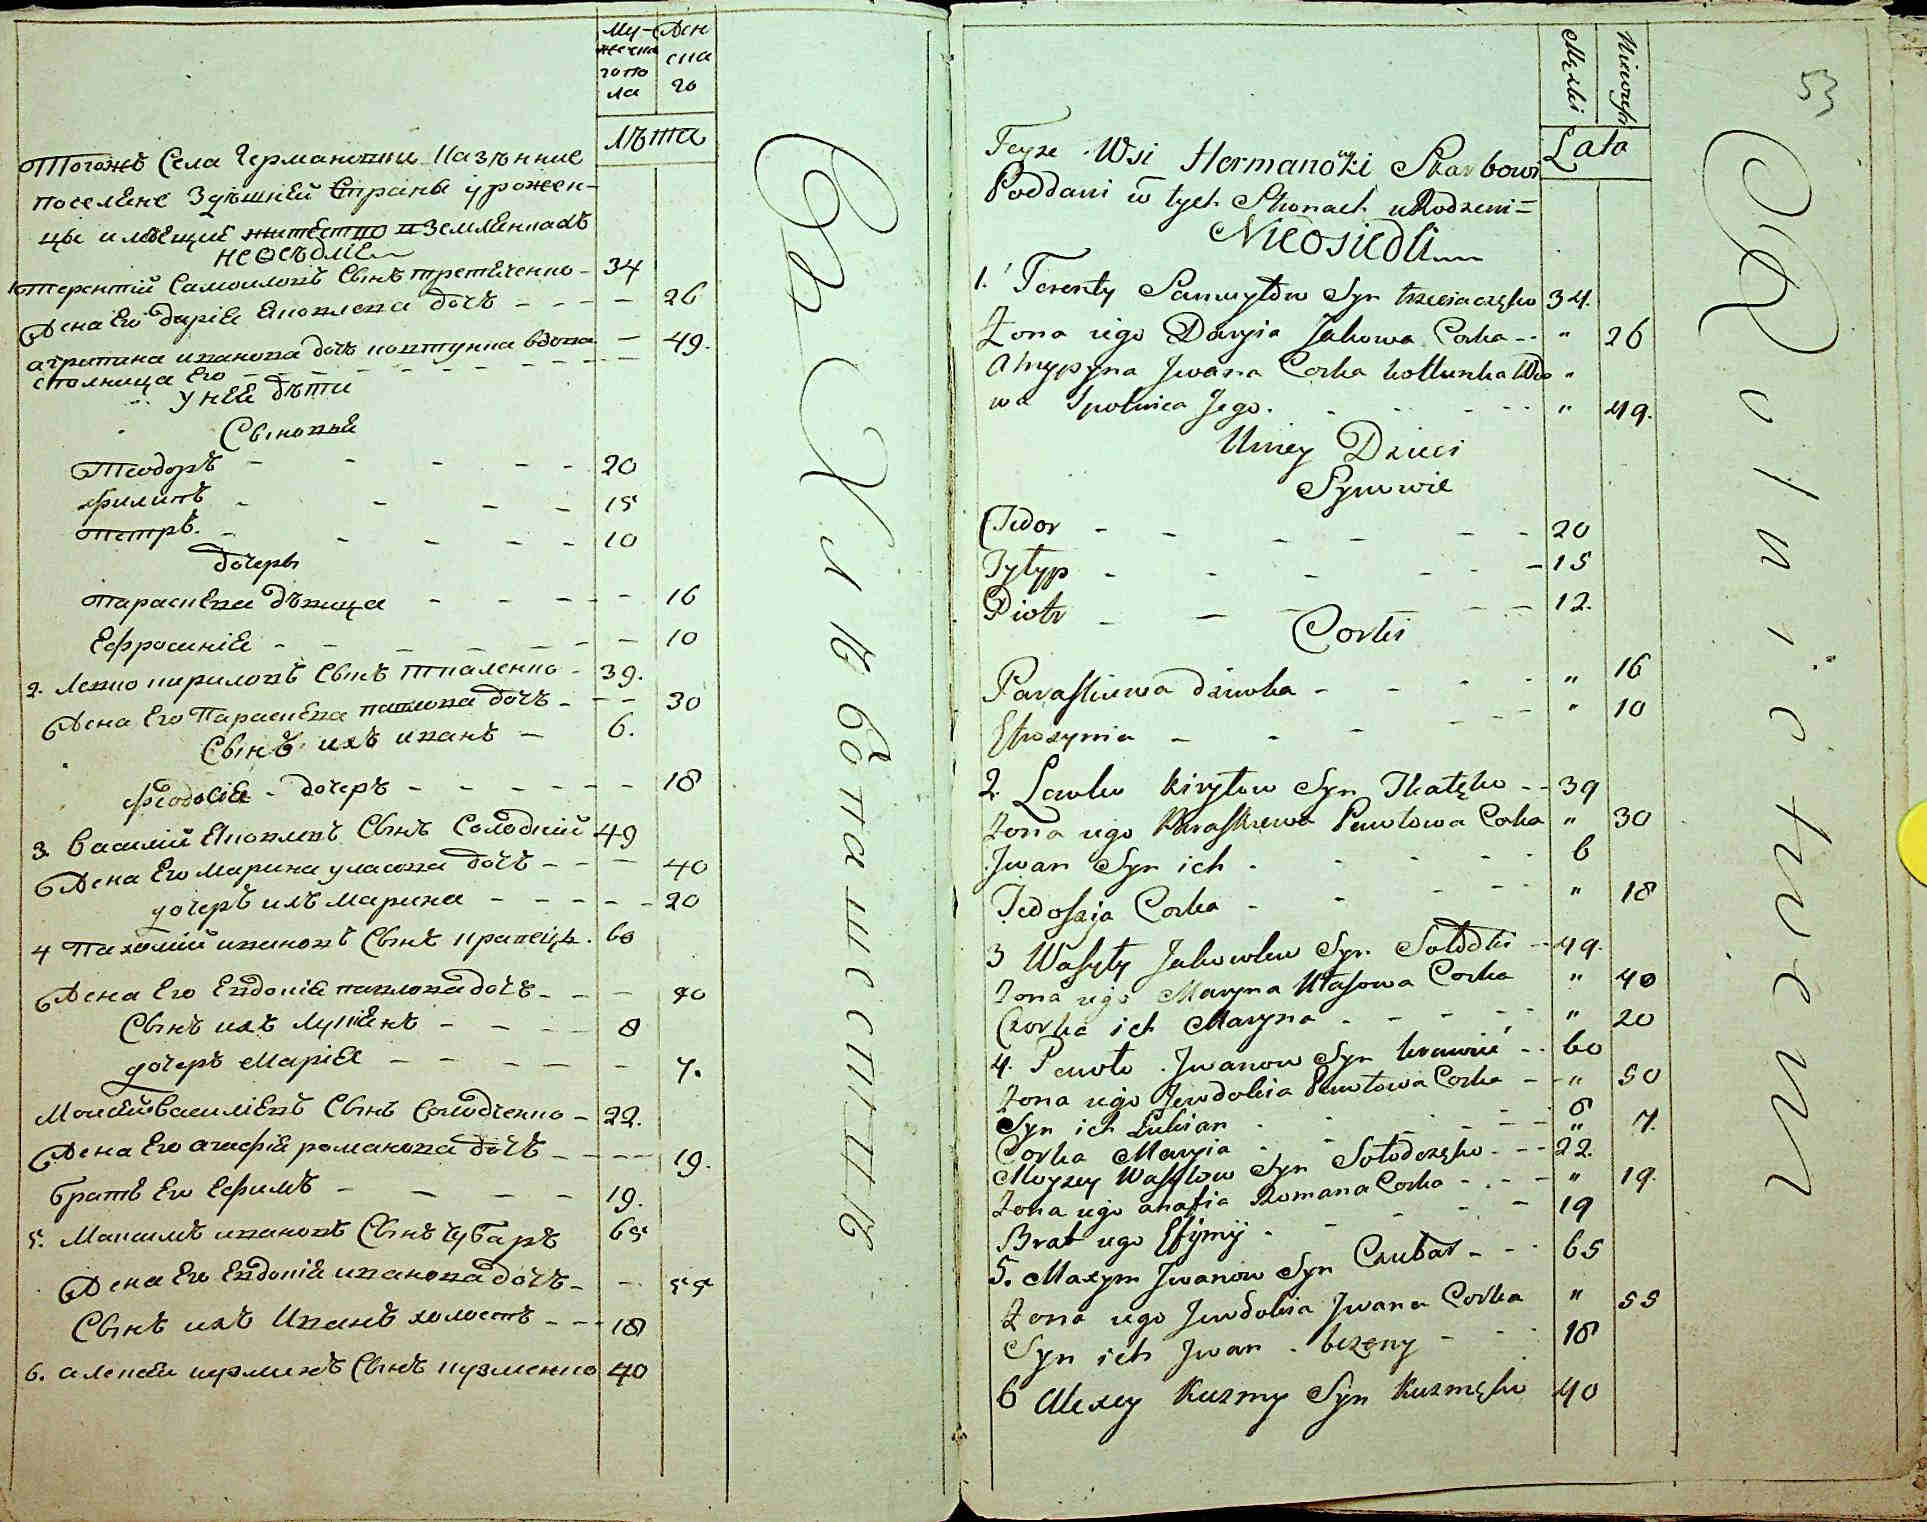 Му-
жеска
гопо
ла
Жен
ска
го
лѣта
Тогожъ Села Германовки Казѣнние
поселяне Здѣшнѣй Страны урожен-
цы имѣющие
неосѣдлие
1. Терентій Самоиловъ Сынъ третяченко - 34
Жена Его Дарія Яковлева дочъ - - - - 26
агрипина иванова дочь ковтунка вдова - 49.
столница Его - - - - - - -
у нея дѣти
Сыновья
Теодоръ - - - - - 20
Филипъ - - - - 15
Петръ. - - - - - 10
дочеры
Параскева дѣвица - - - - - 16
Ефросинія - - - - - - - 10
2. Левко кириловъ Сынъ ткаленко - 39.
Жена Его Параскева павлова дочъ - - - 30
Сынъ ихъ иванъ - 6.
Феодосія - дочеръ - - - - - - 18
3. Василий Яковлевъ Сынъ Солодкий 49
Жена Его Марина уласова дочъ - - - 40
дочеръ ихъ Марина - - - - - 20
4 Пахомій ивановъ Сынъ кравецъ. 60
Жена Его Евдокія павлова дочъ - - - 40
Сынъ ихъ Лукіянъ - - - - 8
дочеръ Марія - - - - - 7.
Моисей василіевъ Сынъ Солодченко - 22.
Жена Его агафія романова дочъ - - - - 19.
братъ Его Ефимъ - - - - - 19.
5. Максимъ ивановъ Сынъ чубаръ 65
Жена Его Евдокія иванова дочъ - - 55
Сынъ ихъ Иванъ холостъ - - - 18
6. алексей кузминъ Сынъ кузменко 40
Сел Хлѣбопашество
53
Męzkei
Niewiesch
Lata
Teyze Wsi Hermanowki Skarbowi
Poddani w tych Stronach uRodzeni =
Nieosiedli
1. Terenty Samuyłow Syn trzeciaczęko 34.
Zona iego Daryia Jakowa Corka - - " 26
Ahrypyna Jwana Corka kołtunka Wdo "
wa Spolnica Jego. - - - - - - " 49.
Uniey Dzieci
Synowie
Fedor - - - - - - - 20
Fyłyp - - - - - - - 15
Piotr - - - - - 12.
Corki
Paraskiewa dziewka - - - - - " 16
Efrozynia - - - - - - " 10
2. Lewko kiryłow Syn Tkalęko - - 39
Zona iego Paraskiewa Pawłowa Corka " 30
Jwan Syn ich - - - - - 6
Fedosia Corka - - - - - " 18
3 Wasyly Jakowlew Syn Sołodki - - 49.
Zona iego Maryna Ułasowa Corka " 40
Czorka ich Maryna - - - - - " 20
4. Pawło Jwanow Syn krawieć - - 60
Zona iego Jewdokia Pawłowa Corka - - " 50
Syn ich Lukian - - - - - 8
Corka Maryia - - - - - " 7.
Moyzey Wasylow Syn Sołodczęko - - - 22.
Zona iego ahafia Romana Corka - - - - " 19.
Brat iego Efymy - - - - - 19
5. Maxym Jwanow Syn Czubar - - - 65
Zona iego Jewdokia Jwana Corka " 55
Syn ich Jwan - bezeny - - - 18
6 Alexey Kuzmy Syn Kuzmęko 40
Rolnictwem